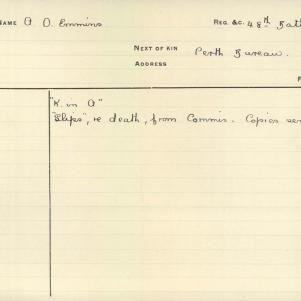 NAME A D. Emmins REG. &C. 48th Batt
NEXT OF KIN Perth Bureau.
ADDRESS
"K. in A"
"Slips", re death, from Commis. Copies sen